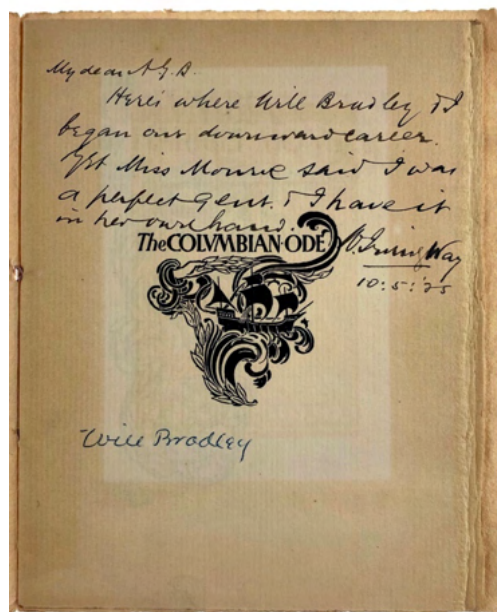 My dear A. G. B.
Here's where Will Bradley & I
began our downward career.
Yet Miss Monroe said I was
a perfect gent. & I have it
in her own hand.
The COLVMBIAN·ODE
W. Irving Way
10:5:'25
Will Bradley